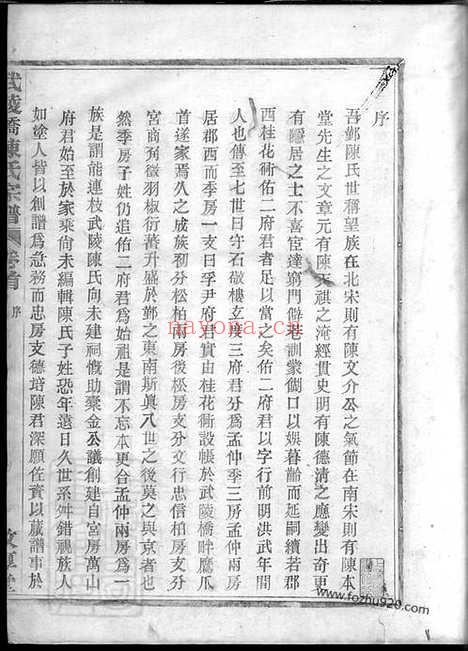 序
吾鄞陳氏世稱望族在北宋則有陳文介公之氣節在南宋則有陳本
堂先生之文章元有陳天祺之淹經貫史明有陳德清之應變出奇更
有隱居之士不喜宦達窮門僻巷訓蒙餬口以娛暮齡而延嗣續若郡
西桂花衖佑二府君者足以當之矣佑二府君以字行前明洪武年間
人也傳至七世曰守石敬樓玄度三府君分爲孟仲季三房孟仲房皆
居郡西而季房一支曰季尹府君實由桂花衖設帳於武陵橋畔鷹爪
首遂家焉久之成族初分松柏兩房後松房支分文行忠信柏房支分
宮商角徵羽椒衍蕃升盛於鄞之東南斯眞八世之後莫之與京者也
然季房子姓仍追佑二府君爲始祖是謂不忘本更合孟仲兩房爲一
族是謂能連枝武陵陳氏向未建祠慨助槖金公議創建自宮房萬山
府君始至於家乘尙未編輯陳氏子姓恐年遠日久世系舛錯視族人
如塗人皆以創譜爲急務而忠房支德培陳君深願佐資以蕆譜事於
武陵橋陳氏宗譜
卷首
序
敦厚堂
nayona.cn
www.fozhu920.com